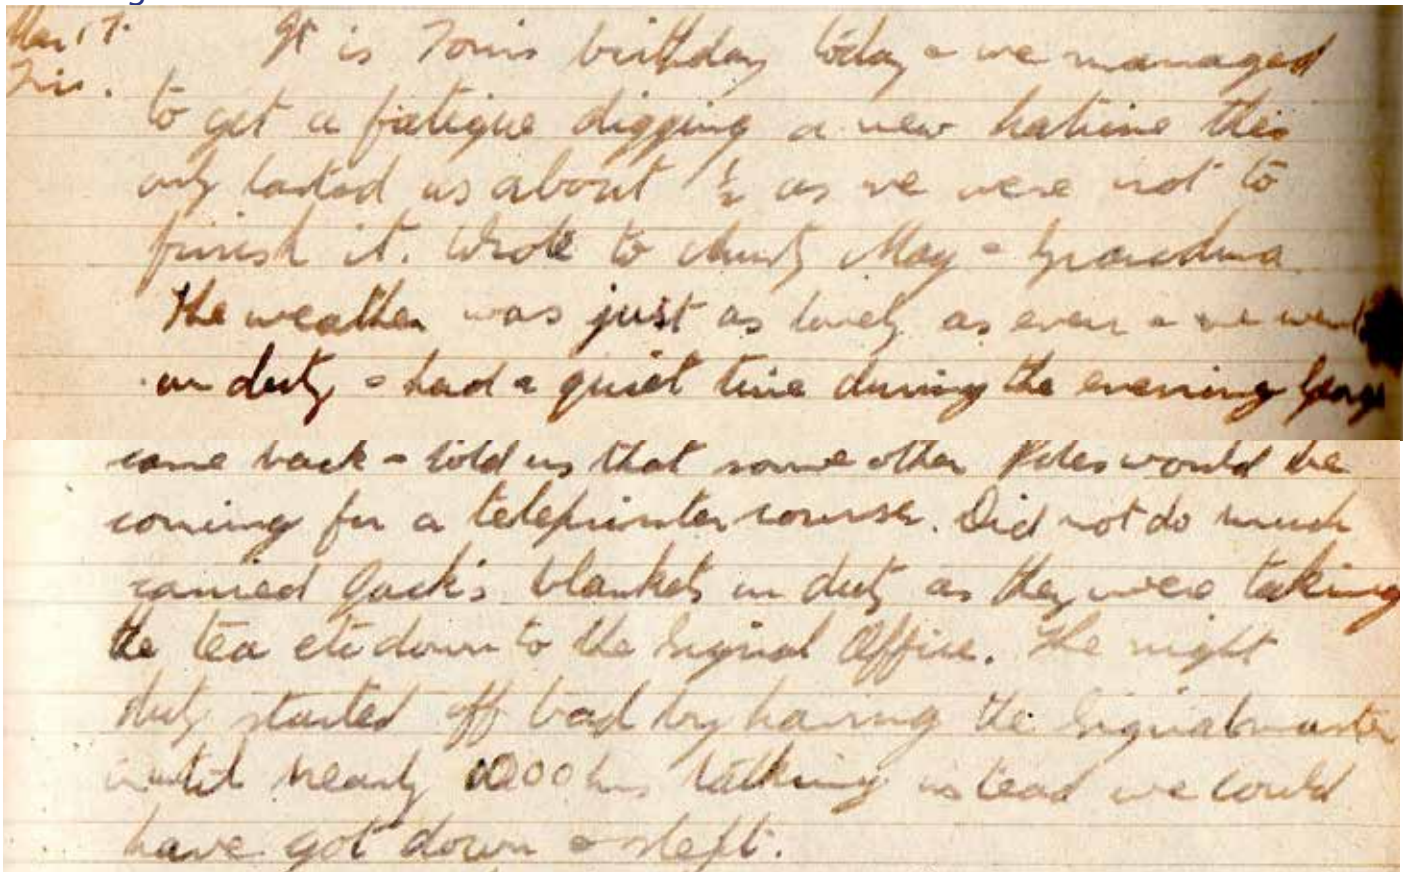 Mar 17.
Fri.
It is Tom's birthday today & we managed
to get a fatigue digging a new latrine this
only lasted us about ½ as we were not to
finish it. Wrote to Aunty May & Grandma
The weather was just as lovely as ever & we went
on duty & had a quiet time during the evening George
came back & told us that some other Poles would be
coming for a teleprinter course. Did not do much
carried Jack's blankets on duty as they were taking
the tea etc down to the Signal Office. The night
duty started off bad by having the Signalmaster
until nearly hrs talking instead we could
have got down & slept.